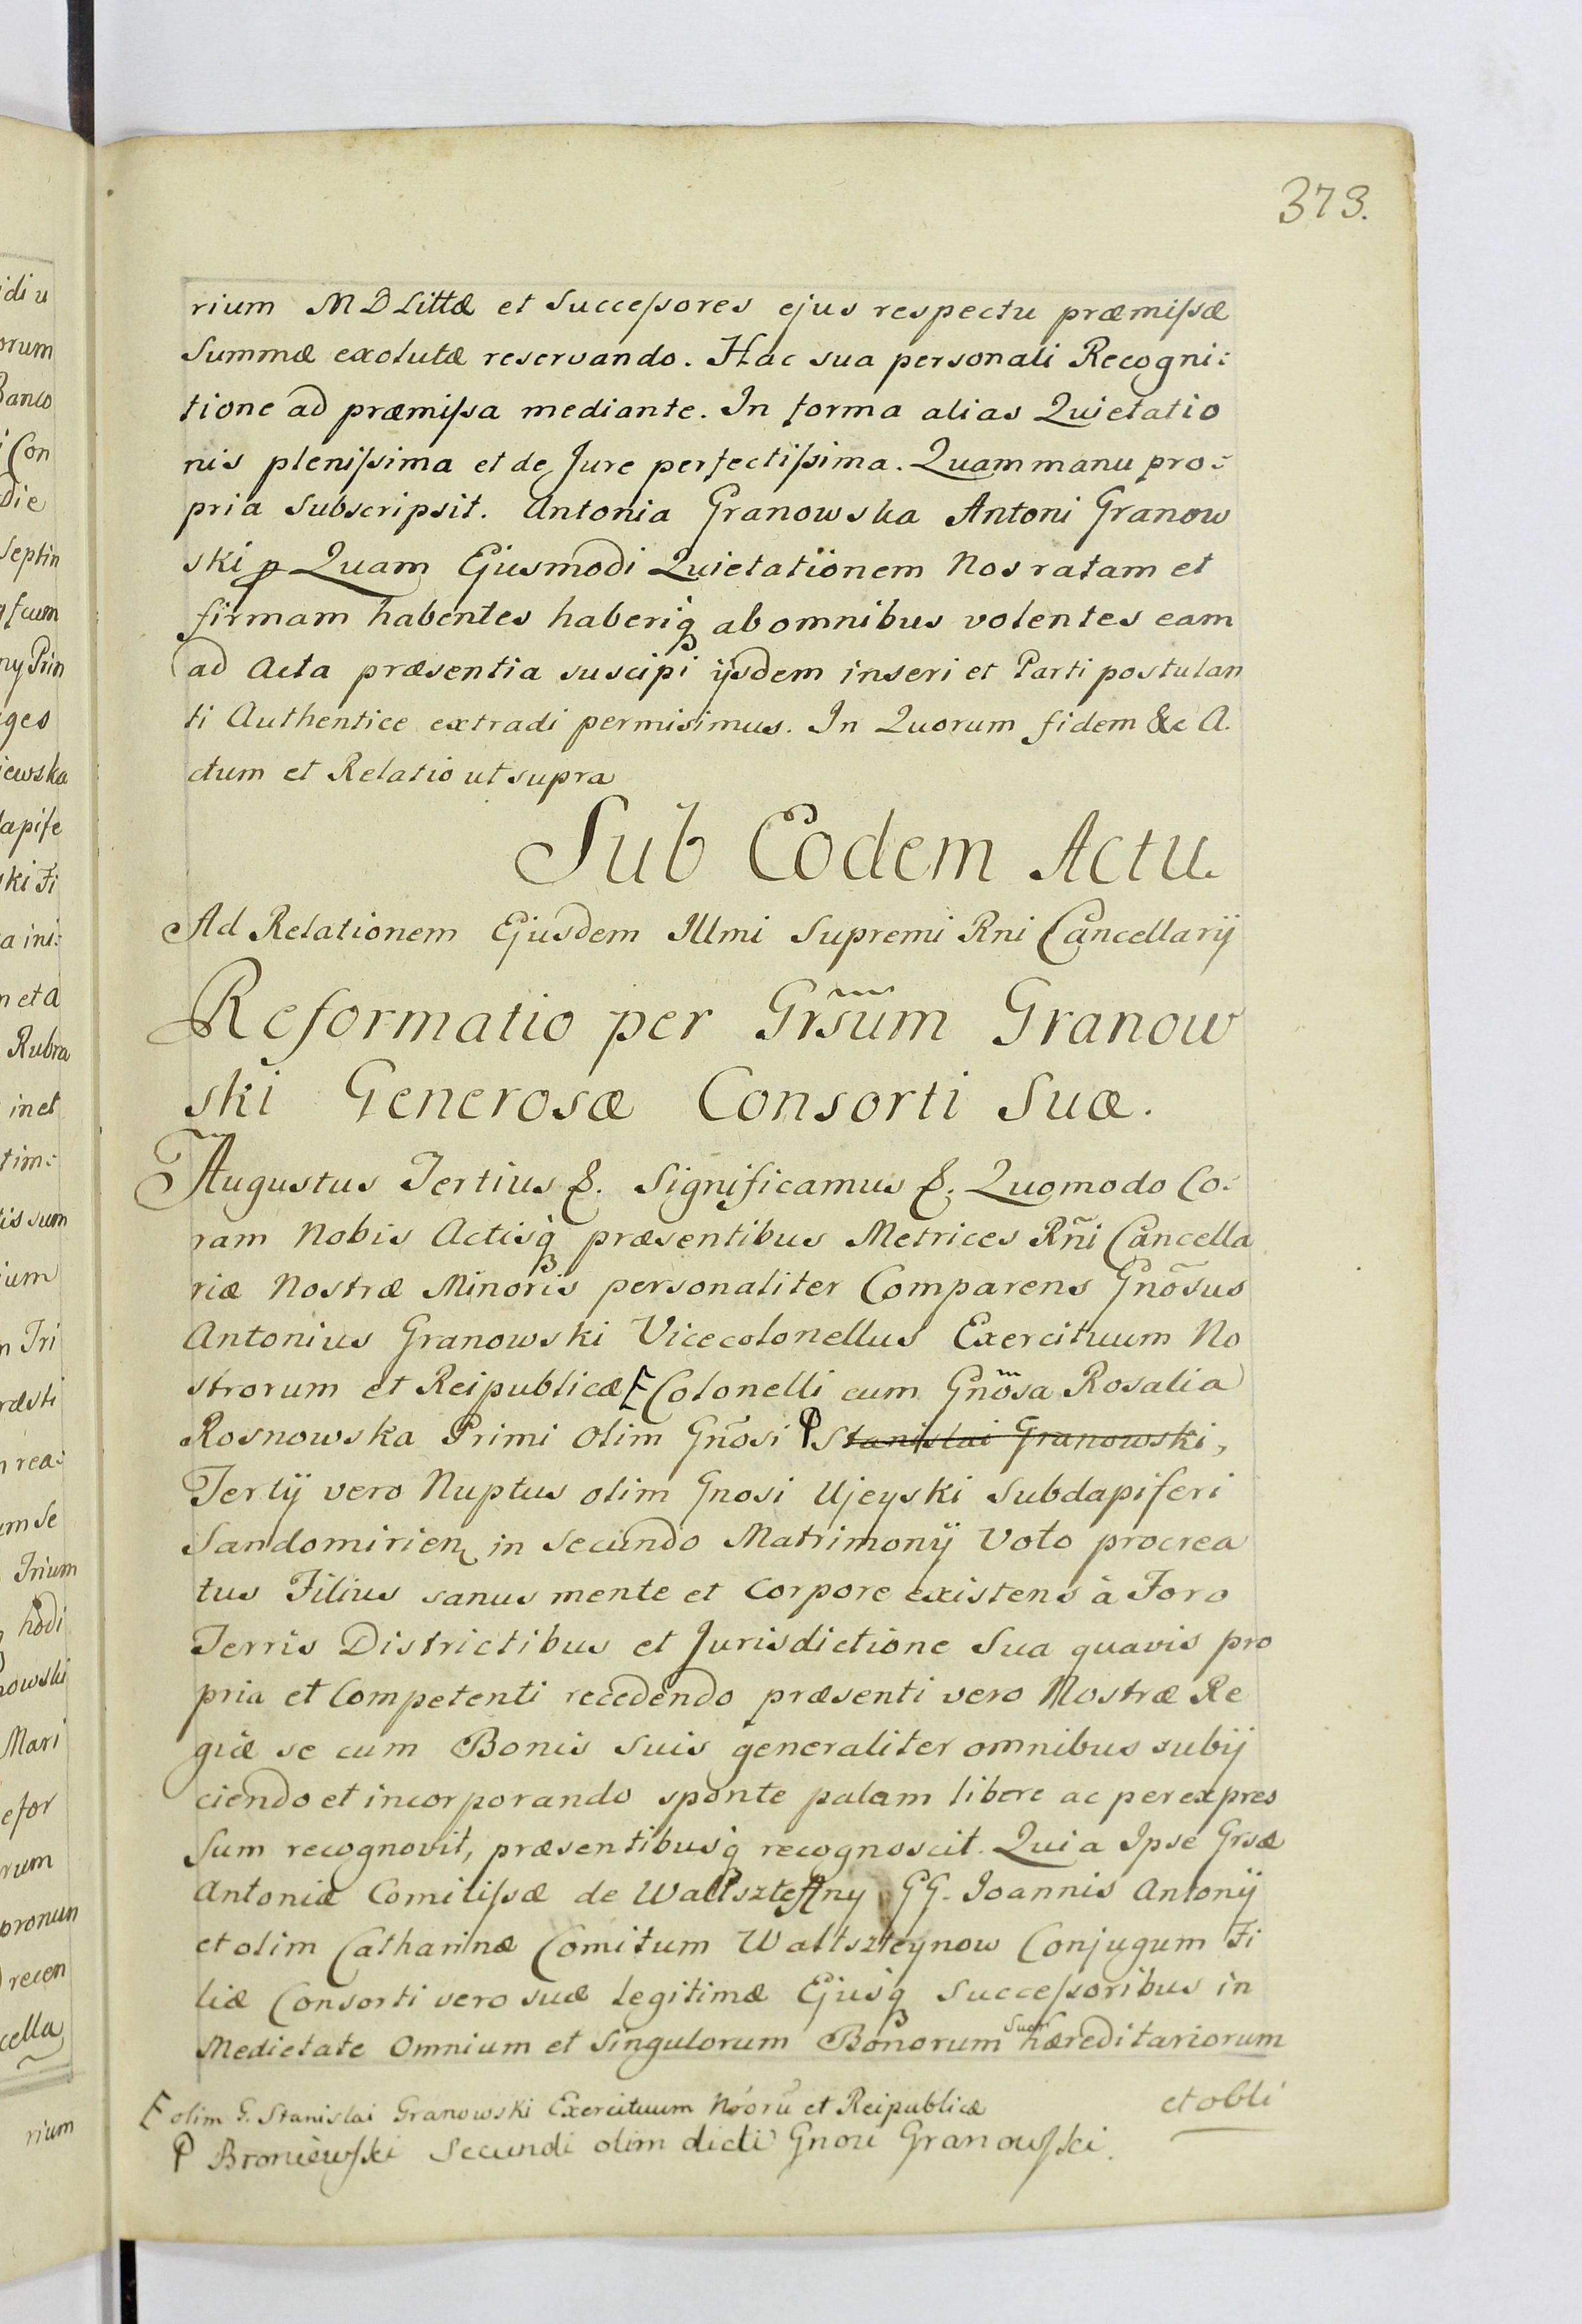 373.
rium M D Littæ et Succeſsores ejus respectu præmiſsæ
Summæ exolutæ reservando. Hac sua personali Recogni:
tione ad præmiſsa mediante. In forma alias Quietatio
nis pleniſsima et de Jure perfectiſsima. Quam manu pro:
pria Subscripsit. Antonia Granowska Antoni Granow
ski p Quam Ejusmodi Quietationem Nos ratam et
firmam habentes haberiq ab omnibus volentes eam
ad Acta præsentia suscipi ijsdem inseri et Parti postulan
ti Authentice extradi permisimus. In Quorum fidem &c A.
ctum et Relatio ut supra
Sub Eodem Actu.
Ad Relationem Ejusdem Illmi Supremi Rni Cancellarij
Reformatio per Grsum Granow
ski Generosæ Consorti Suæ.
Augustus Tertius &. Significamus &. Quomodo Co:
ram Nobis Actisq præsentibus Metrices Rñi Cancella
riæ Nostræ Minoris personaliter Comparens Gnõsus
Antonius Granowski Vicecolonellus Exercituum No
strorum et Reipublicæ Colonelli cum Gnosa Rosalia
Rosnowska Primi Olim Gnõsi Stanislai Granowski,
Tertij vero Nuptus olim Gnosi Ujeyski Subdapiferi
Sandomirien in Secundo Matrimonij Voto procrea
tus Filius sanus mente et Corpore existens à Foro
Terris Districtibus et Jurisdictione Sua quavis pro
pria et Competenti recedendo præsenti vero Nostræ Re
giæ se cum Bonis Suis generaliter omnibus subij
ciendo et incorporando sponte palam libere ac per expres
Sum recognovit, præsentibusq recognoscit. Quia Ipse Grsæ
Antoniæ Comitiſsæ de GG. Joannis Antonij
et olim Catharinæ Comitum Waltszteynow Conjugum Fi
liæ Consorti vero suæ legitimæ Ejusq Succeſsoribus in
Medietate Omnium et Singulorum Bonorum Suor hæreditariorum
et obli
olim G. Stanislai Granowski Exercituum Nrorũ et Reipublicæ
Broniewſki Secundi olim dicti Gnosi Granowſki.